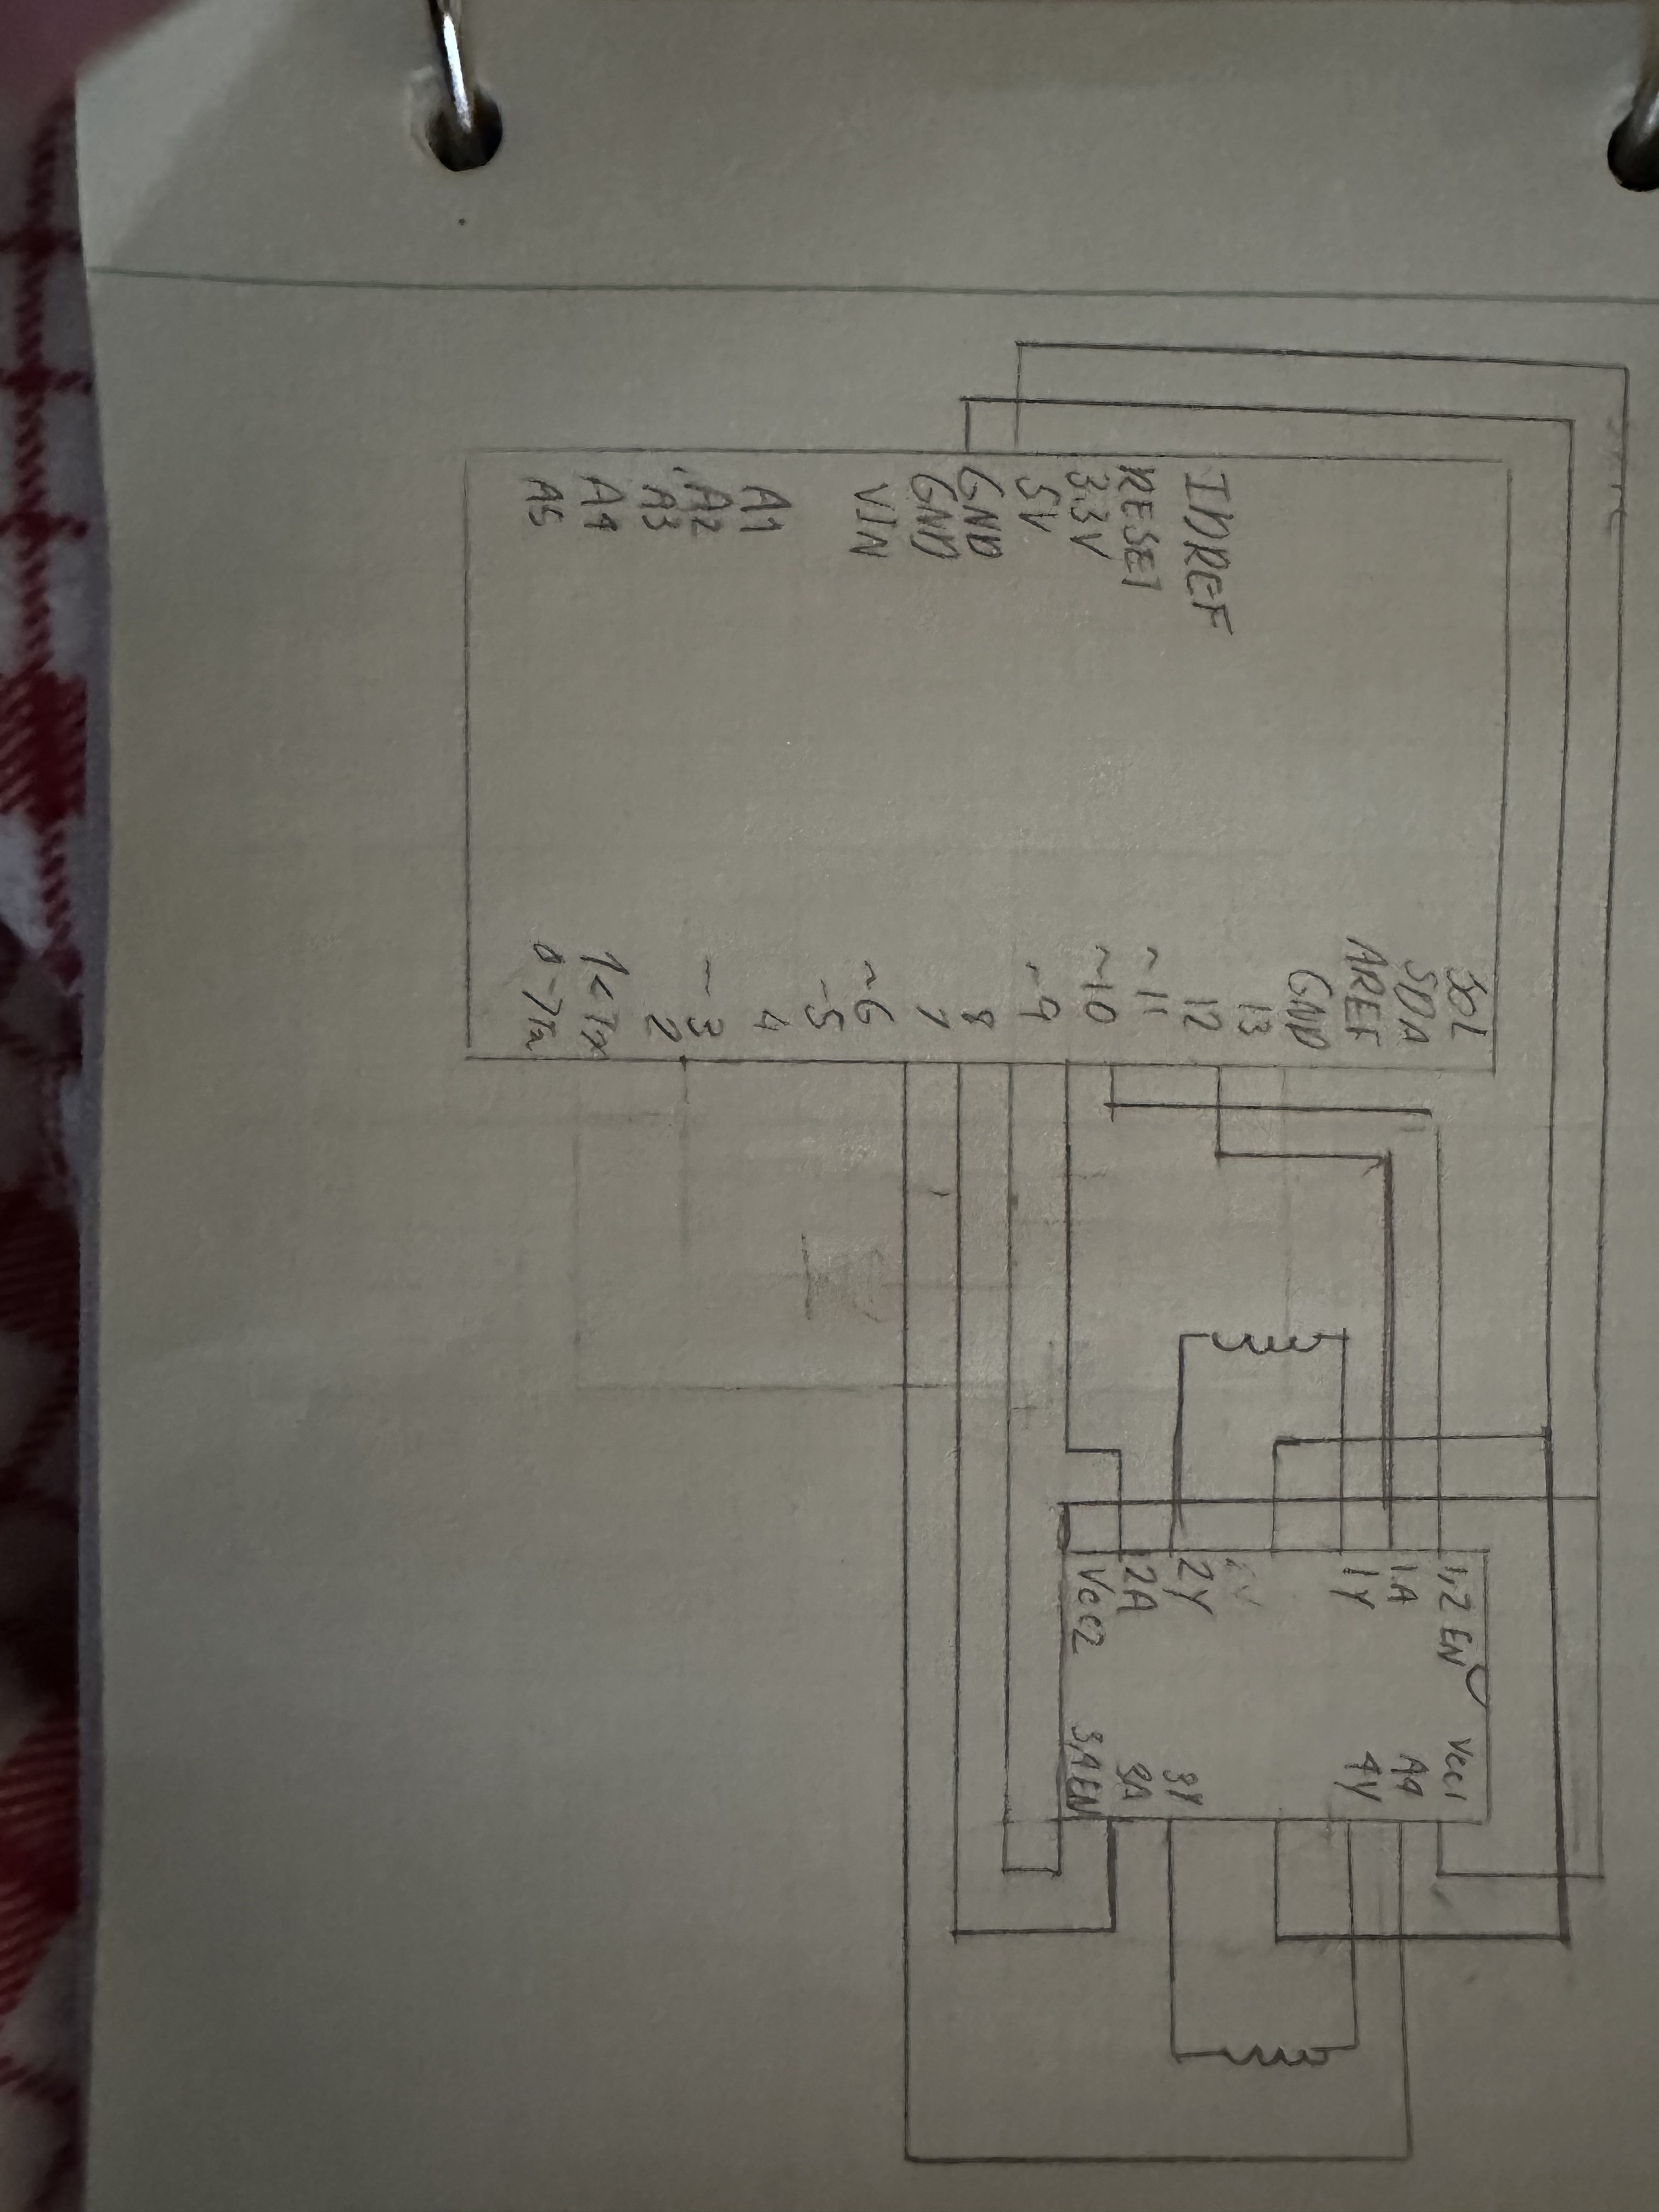 IDREF
RESET
3.3V
5V
GND
GND
VIN
A1
A2
A3
A4
A5
SDA
AREF
GND
13
12
~11
~10
~9
8
7
~6
~5
4
~3
2
1<Tx
1,2 EN
1A
1Y
2Y
2A
Vcc2
Vcc1
A4
4Y
3Y
3A